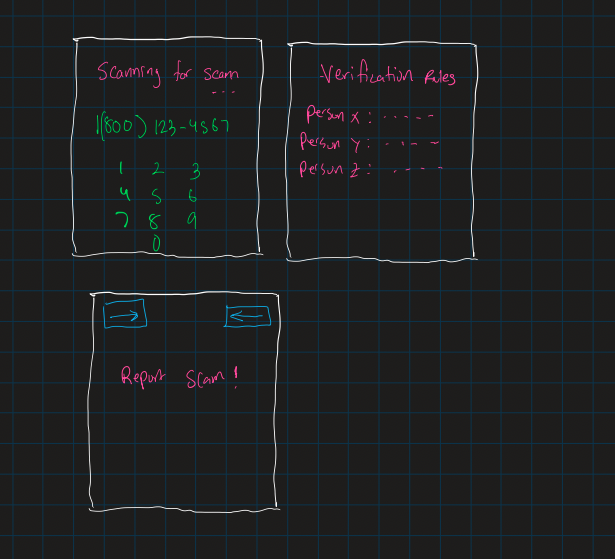 Scanning for scam
...
1(800) 123-4567
1 2 3
4 5 6
7 8 9
0
Verification Rules
Person X: -----
Person Y: ----
Person Z: ----
→ ←
Report Scam!